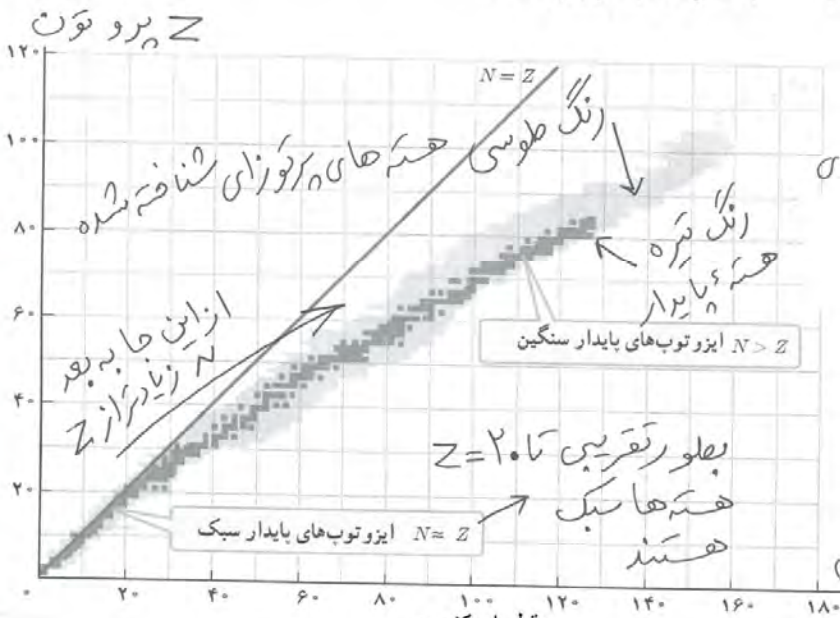 Z پروتون
۱۲۰
N = Z
رنگ طوسی هسته های پرتوزای شناخته شده
۱۰۰
۸۰
رنگ تیره
هستهٔ پایدار
۶۰
از این جا به بعد
N زیادتر از Z
N > Z ایزوتوپ‌های پایدار سنگین
۴۰
بطور تقریبی تا Z=۲۰
هسته ها سبک
هستند
۲۰
N ≈ Z ایزوتوپ‌های پایدار سبک
۰ ۲۰ ۴۰ ۶۰ ۸۰ ۱۰۰ ۱۲۰ ۱۴۰ ۱۶۰ ۱۸۰